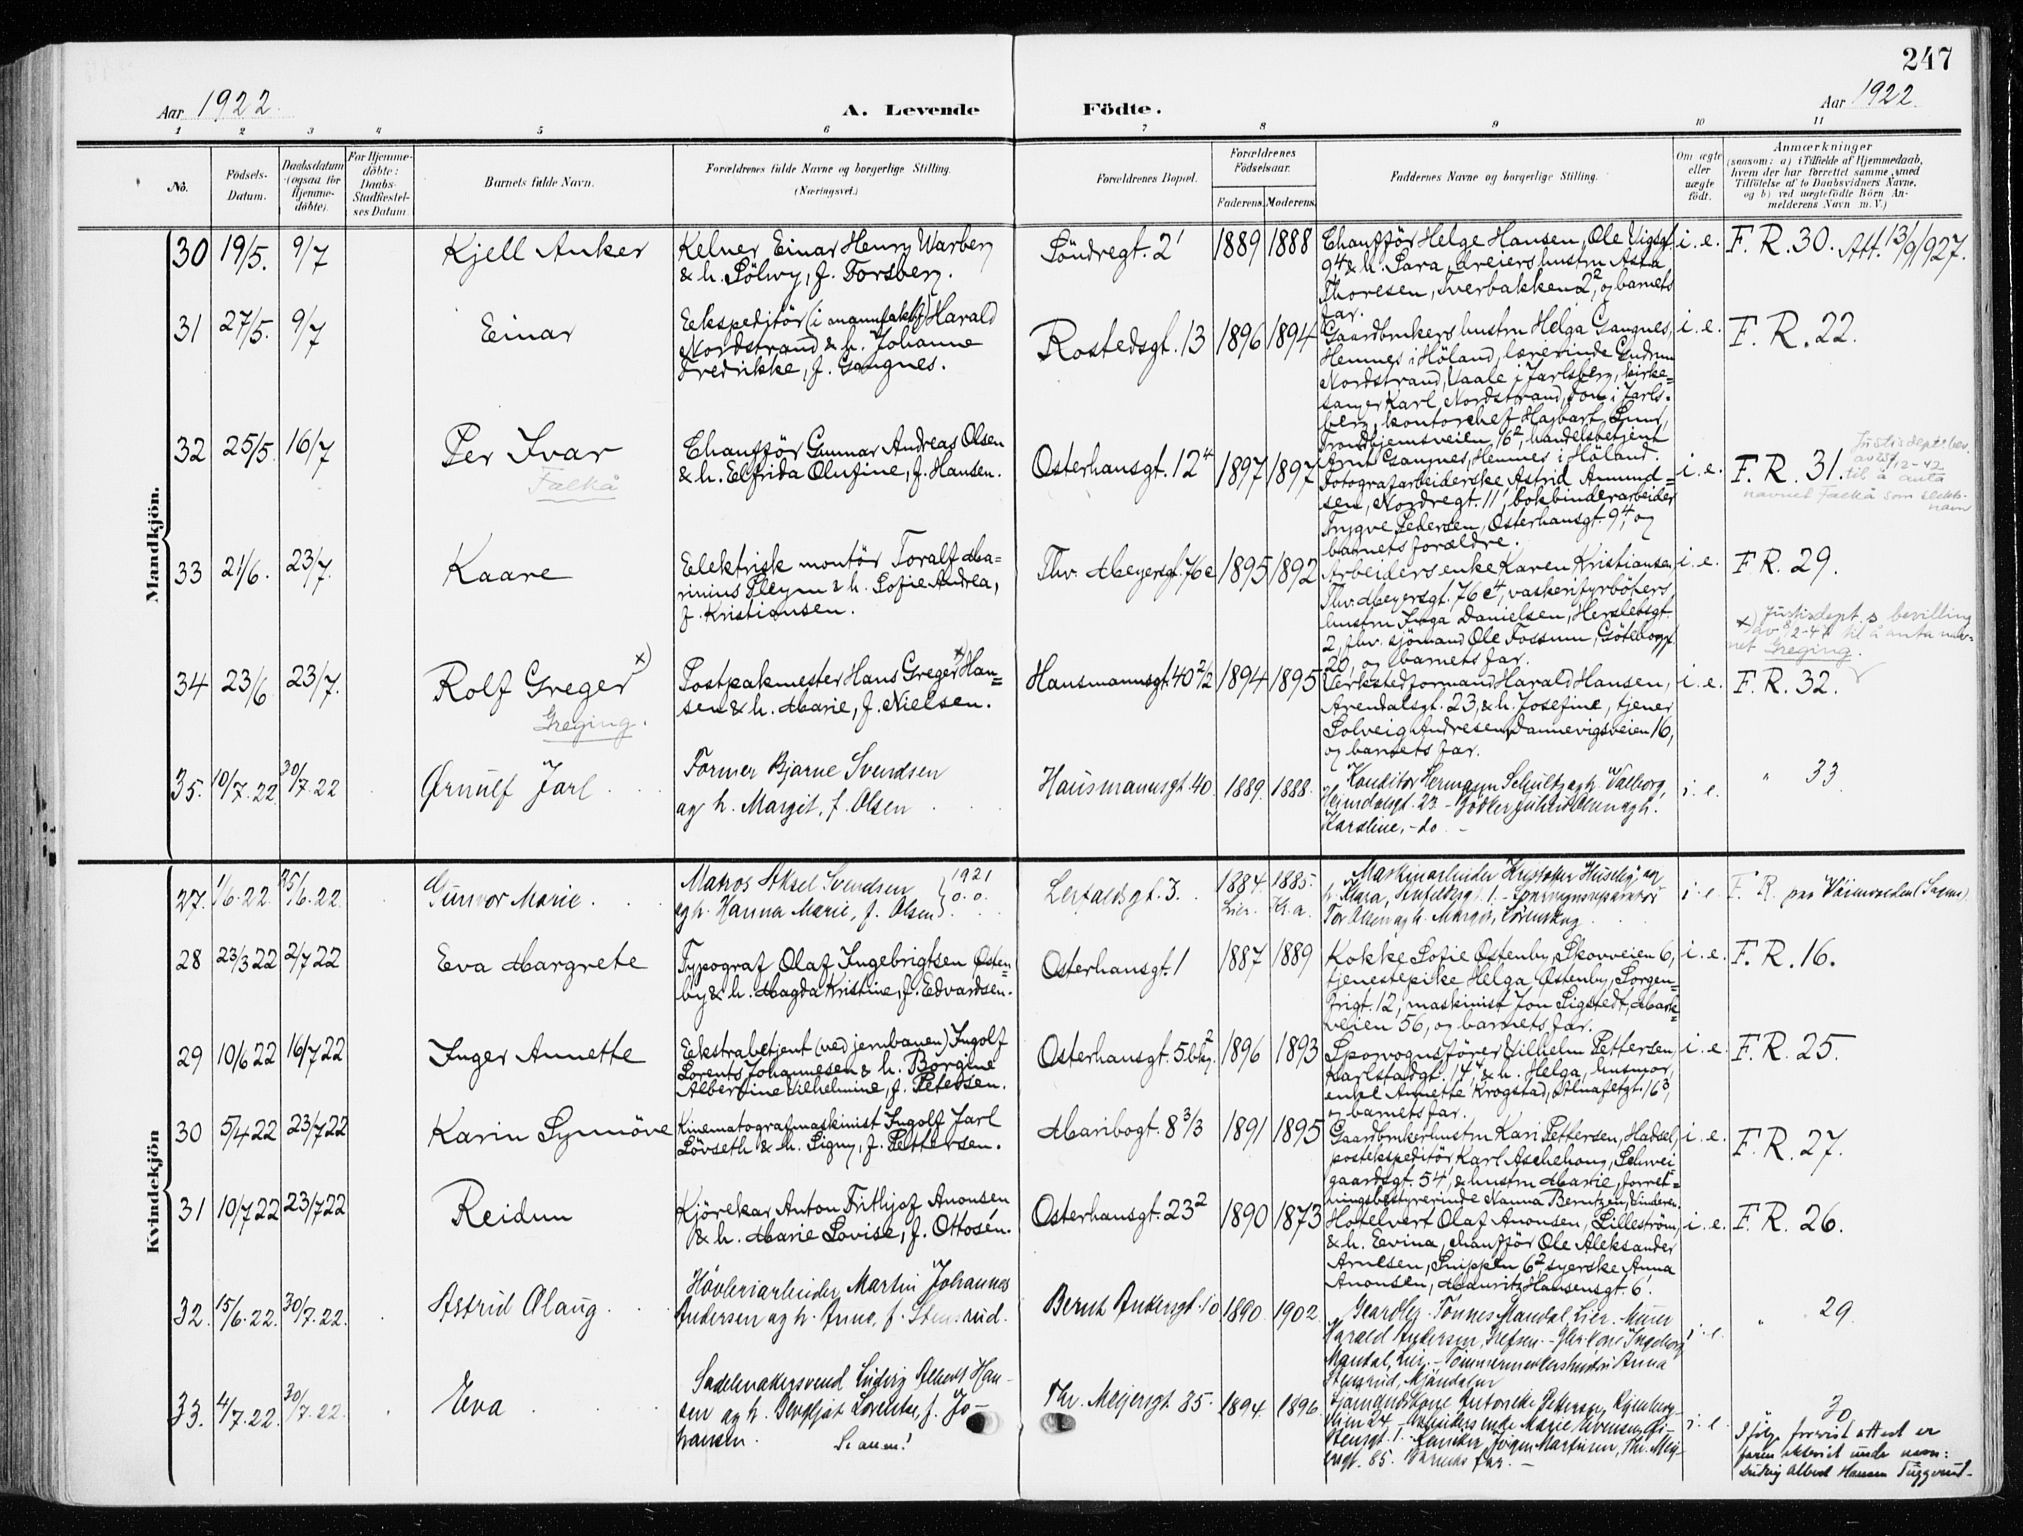 247
Aar 1922.
A. Levende Födte.
Aar 1922.
1 2 3 4 5 6 7 8 9 10 11
No.
Födsels-Datum.
Daabsdatum (ogsaa for Hjemme-döbte).
For Hjemme-döbte: Daabs-Stadfæstel-ses Datum
Barnets fulde Navn.
Forældrenes fulde Navne og borgerlige Stilling.
(Næringsvei.)
Forældrenes Bopæl.
Forældrenes Födselsaar.
Faderens. Moderens.
Faddernes Navne og borgerlige Stilling.
Om ægte eller uægte födt.
Anmærkninger
(saasom: a) i Tilfælde af Hjemmedaab,
hvem der har forrettet samme, med
Tilföielse af to Daabsvidners Navne,
og b) ved uægtefödte Börn An-
melderens Navn m. V.)
Mandkjön.
30 19/5. 9/7 Kjell Anker
Kelner Einar Henry Warberg
& h. Sölvy, f. Forsberg.
Söndregt. 2' 1889 1888
Chaufför Helge Hansen, Ole Vigsgt.
9⁴ & h. Sara, dreiers hustru Asta
Thoresen, Sverbakken 2², og barnets
far.
i. e. F. R. 30. Att. 13/9/927.
31 27/5. 9/7 Einar
Ekspeditör (i manufakt.) Harald
Nordstrand & h. Johanne
Fredrikke, f. Gangnes.
Rostedsgt. 13 1896 1894
Gaardbrukers hustru Helga Gangnes,
Hemnes i Höland, lærerinde Gudrun
Nordstrand, Vaale i Jarlsberg, kirke=
sanger Karl Nordstrand, i Jarls-
berg, kontorchef Hagbart Lund,
Trondhjemsveien 16², handelsbetjent
Arnt Gangnes, Hemnes i Höland.
i. e. F. R. 22.
32 25/5 16/7 Per Ivar
Falkå
Chaufför Gunnar Andreas Olsen
& h. Elfrida Olufine, f. Hansen.
Osterhausgt. 12⁴ 1897 1897
Fotografarbeiderske Astrid Amund=
sen, Nordregt. 11', bokbinderarbeider
Trygve Pedersen, Osterhausgt. 9⁴, og
barnets forældre.
i. e. F. R. 31.
Justisdepts bev.
av 23/12-42
til å anta
navnet Falkå som slekts-
navn
33 21/6. 23/7. Kaare
Elektrisk montör Toralf Ma=
rinius Pleym & h. Sofie Andrea,
f. Kristiansen.
Thv. Meyersgt. 76c 1895 1892
Arbeiders enke Karen Kristiansen,
Thv. Meyersgt. 76c⁴, vaskerifyrböters
hustru Inga Danielsen, Herslebsgt.
2, fhv. sjömand Ole Fossum, Göteborggt
20, og barnets far.
i. e. F R. 29.
34 23/6 23/7. Rolf Greger x)
Greging.
Postpakmester Hans Greger x) Han=
sen & h. Marie, f. Nielsen.
Hausmannsgt. 40 2/2 1894 1895
Verkstedformand Harald Hansen,
Arendalsgt. 23, & h. Josefine, tjener
Solveig Andresen, Dannevigsveien 16,
og barnets far.
i. e. F. R. 32.
x) Justisdept.s bevilling
av 8/2-47 til å anta nav-
net Greging.
35. 10/7.22 30/7.22 Ørnulf Jarl
Former Bjarne Svendsen
og h. Margit, f. Olsen
Hausmannsgt. 40. 1889. 1888.
Konditor Hermann Schultz og h. Valborg,
Heimdalsgt. 23 - Olsen og h.
Karoline, - do -
i. e. " 33
Kvindekjön
27. 1/6.22. 25/6.22. Gunvor Marie.
Matros Aksel Svendsen 1921
og h. Hanna Marie, f. Olsen
Lerfaldsgt. 3. 1884 1885.
Lier. Kr.a.
Maskinarbeider Kristofer Huseby og
h. Klara, 1. - Sporvognsreparatör
Tor Olsen og h. Margot, Lörenskog
i. e. F. R. paa (Sagene).
28 23/3 22 2/7 22 Eva Margrete
Typograf Olaf Ingebrigtsen Østen=
by & h. Magda Kristine, f. Edvardsen.
Osterhausgt. 1 1887 1889
Kokke Sofie Østenby, Skovveien 6,
tjenestepike Helga Østenby, Sorgen-
frigt. 12, maskinist Jon Sigstedt, Mark=
veien 56, og barnets far.
i. e. F. R. 16.
29 10/6 22 16/7 22 Inger Annette
Ekstrabetjent (ved jernbanen) Ingolf
Lorents Johannesen & h. Borgine
Albertine Vilhelmine, f. Petersen.
Osterhausgt. 5 bkg.² 1896 1893
Sporvognsförer Vilhelm Pettersen,
Karlstadgt. 14⁴, & h. Helga, husmor,
enke Annette Krogstad, Alnafetgt. 16³,
og barnets far.
i. e. F. R. 25.
30 5/4 22 23/7 22 Karin Synnöve
Kinematografmaskinist Ingolf Jarl
Lövseth & h. Signy, f. Pettersen.
Maribogt. 8 3/3 1891 1895
Gaardbrukerhustru Kari Pettersen, Hadsel,
postekspeditör Karl Aschehoug, Schwei-
gaardsgt. 54', & hustru Marie, forret=
ningsbestyrerinde Nanna Berntzen, Vinderen.
i. e. F. R. 27.
31 10/7 22 23/7 22 Reidun
Kjörekar Anton Frithjof Anonsen
& h. Marie Lovise, f. Ottosén.
Osterhausgt. 23² 1890 1873
Hotelvert Olaf Anonsen, Lilleström,
& h. Evina, chaufför Ole Aleksander
Arnesen, Snippen 6², syerske Anna
Anonsen, Mauritz Hansensgt. 6'.
i. e. F. R. 26.
32. 15/6.22. 30/7.22. Astrid Olaug
Hövleriarbeider Martin Johannes
Andersen og h. Anne, f. Stensrud.
Bernt Ankersgt. 10 1890. 1902.
Gaardbr. Tönnes Mandal, Lier. - Murer
Harald Andersen, Grefsen. - Ingeborg
Mandal, Lier. - Tømmermandshustru Anna
Stensrud, Mjöndalen
i. e. " 29.
33. 4/7.22. 30/7.22. Eva
Sadelmakersvend Ludvig Albert Han-
sen og h. Bergljot Lorentse, f. Jo-
hansen. Se anm!
Thv. Meyersgt. 85. 1894. 1896.
Sjömands kone Antonette Pedersen,
24, Arbeiders enke Marie
1. - Jörgen Martinsen, Thv. Mey-
ersgt. 85. Barnets far. -
i. e. 30
Ifölge forevist attest er
faren döbt under navn:
Ludvig Albert Hansen Tuggerud.